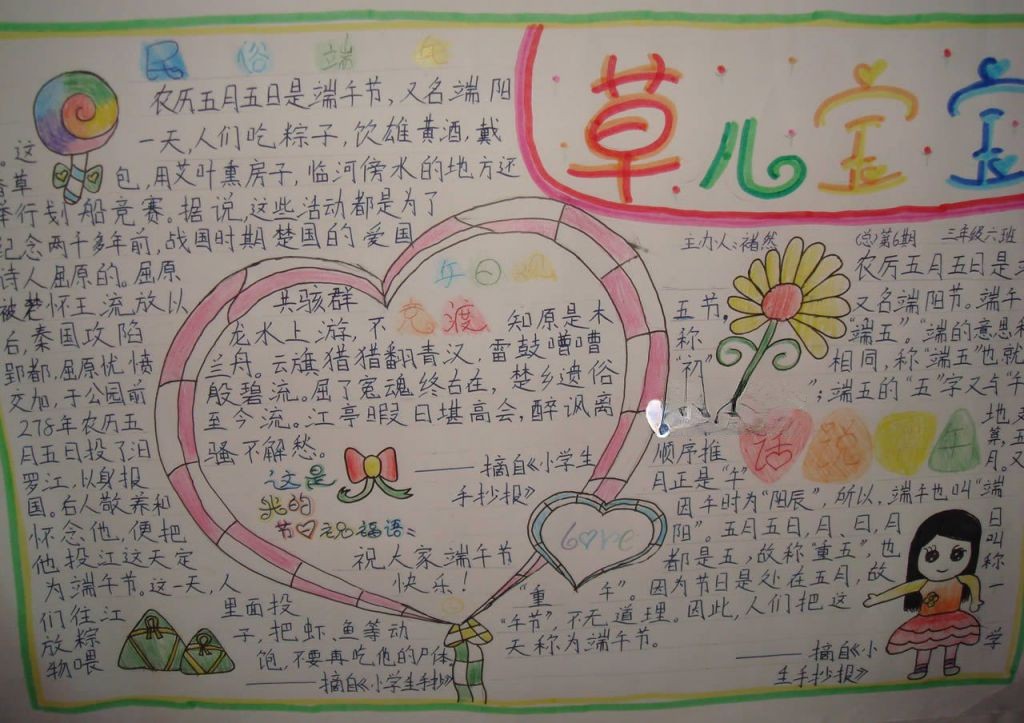 民俗端午
农历五月五日是端午节,又名端阳
一天,人们吃粽子,饮雄黄酒,戴
。这
草包,用艾叶熏房子,临河傍水的地方还
举行划船竞赛。据说,这些活动都是为了
纪念两千多年前,战国时期楚国的爱国
诗人屈原的。屈原
被楚怀王流放以
后,秦国攻陷
郢都,屈原忧愤
交加,于公园前
278年农历五
月五日投了汨
罗江,以身报
国。后人敬养和
怀念他,便把
他投江这天定
为端午节。这一天,人
们往江里面投
放粽子,把虾、鱼等动
物喂饱,不要再吃他的尸体
——摘自《小学生手抄》
草儿宝宝
主办人:褚然
(总)第6期
三年级六班
午日
竞渡
共骇群龙水上游,不知原是木
兰舟。云旗猎猎翻青汉,雷鼓嘈嘈
殷碧流。屈了冤魂终古在,楚乡遗俗
至今流。江亭暇日堪高会,醉讽离
骚不解愁。
——摘自《小学生
手抄报》
这是
光的
节♡祝福语:
祝大家端午节
快乐!
Love
话说
午
农历五月五日是
五节,又名端阳节。端午
称“端五”。“端的意思和
“初”相同,称“端五”也就
”;端五的“五”字又与“午
地支
顺序推算,五
月正是“午”月。又
因午时为“阳辰”,所以,端午也叫“端
阳”。五月五日,月、日,月日叫
都是五,故称“重五”,也称
“重午”。因为节日是处在五月,故一
“午节”,不无道理。因此,人们把这
天称为端午节。
——摘自《小学
生手抄报》